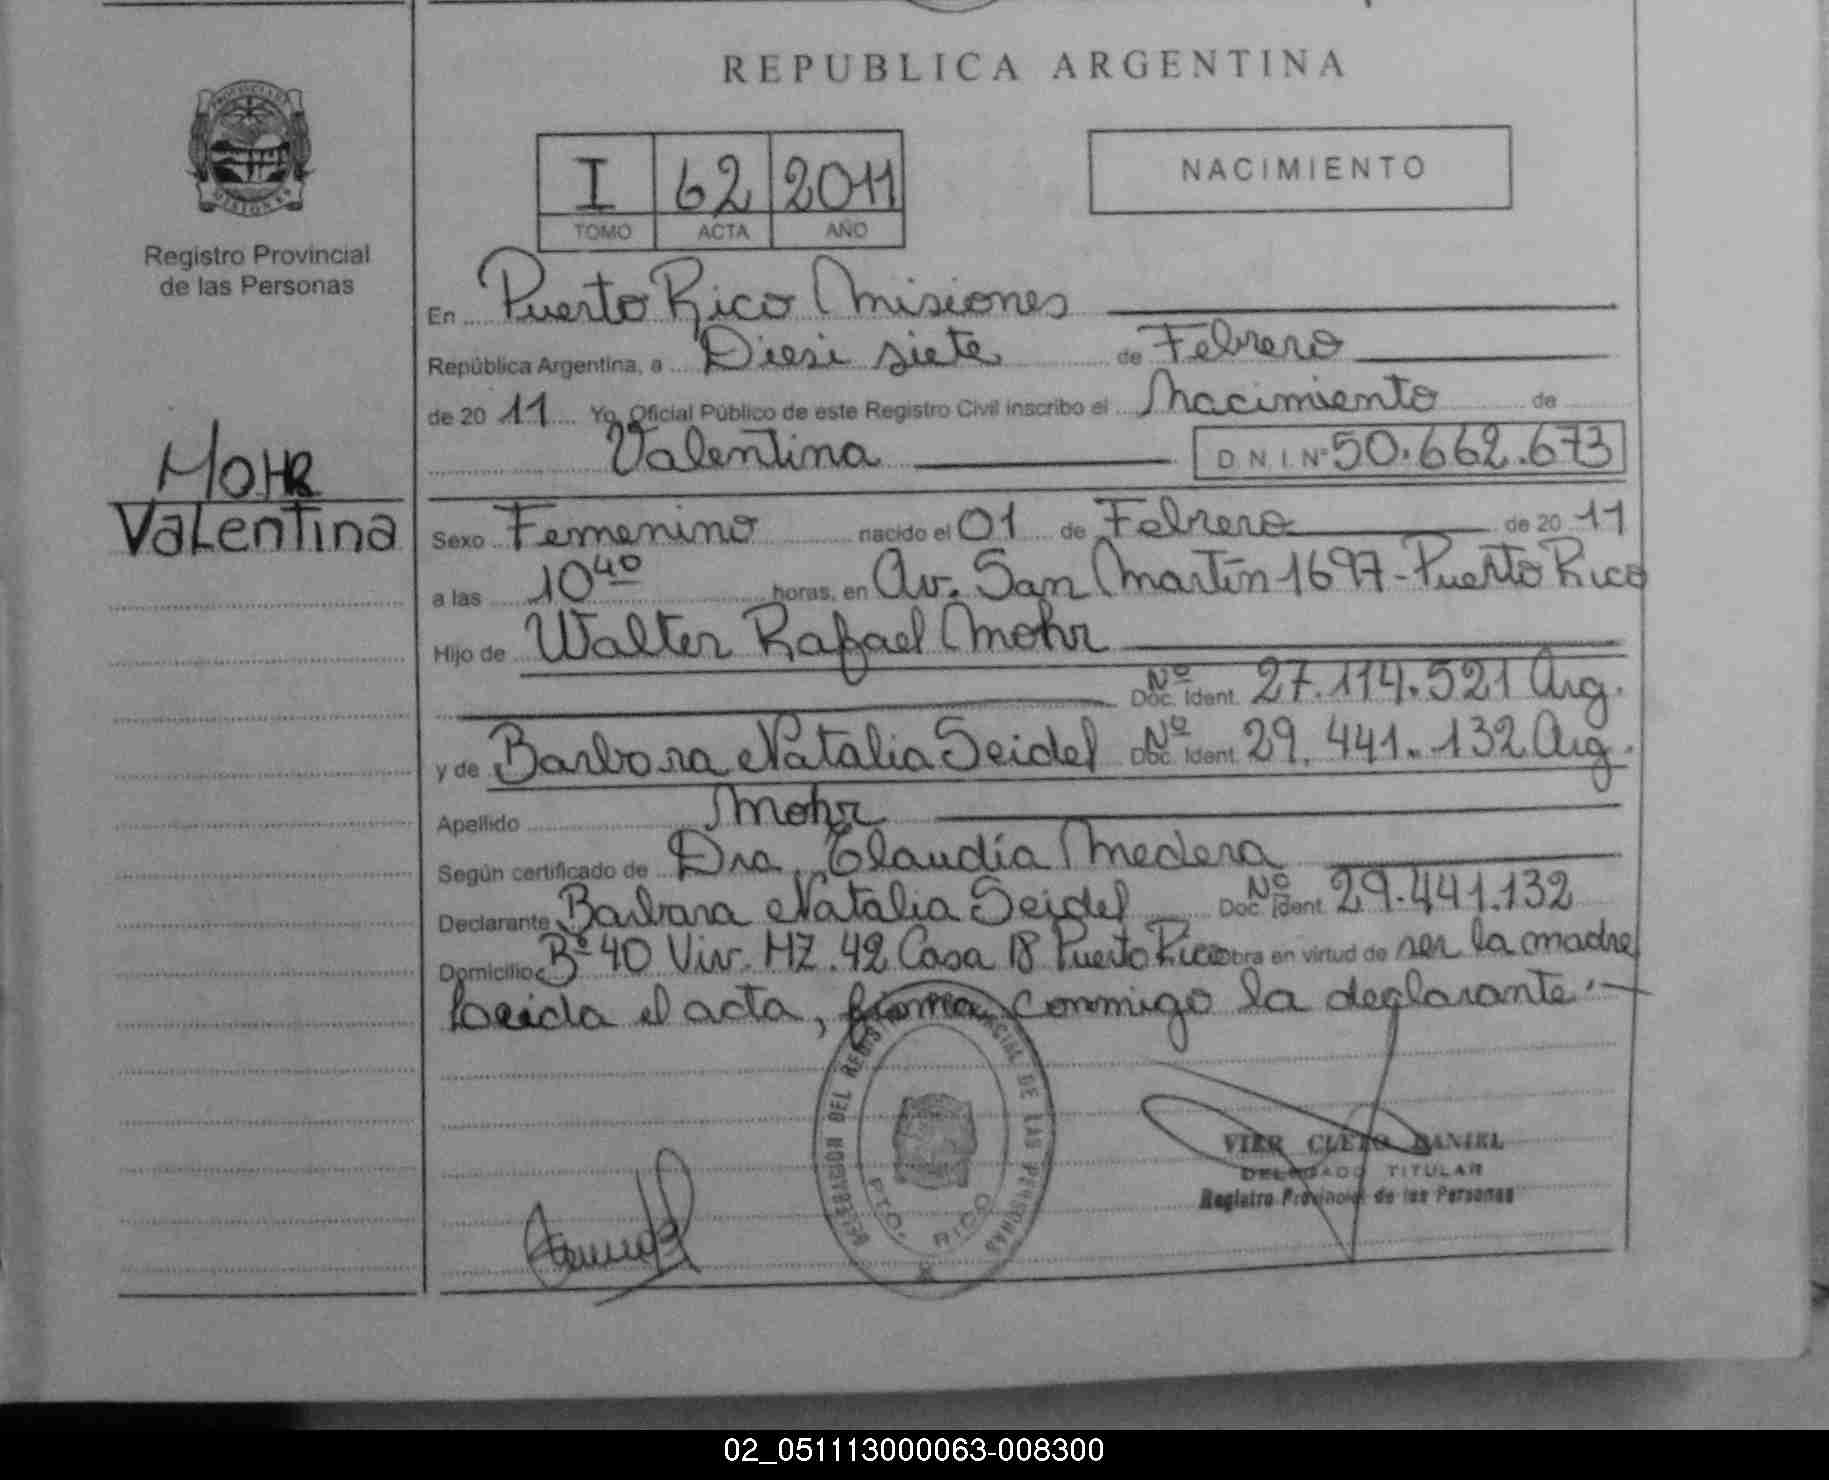 REPUBLICA ARGENTINA
PROVINCIA DE
MISIONES
Registro Provincial
de las Personas
I 62 2011
TOMO ACTA AÑO
NACIMIENTO
MOHR
Valentina
En Puerto Rico Misiones
República Argentina, a Diesi siete de Febrero
de 20 11 Yo, Oficial Público de este Registro Civil inscribo el Nacimiento de
Valentina D.N.I. Nº 50.662.673
Sexo Femenino nacido el 01 de Febrero de 20 11
a las 10 40 horas, en Av. San Martín 1697 - Puerto Rico
Hijo de Walter Rafael Mohr
Nº Doc. Ident. 27.114.521 Arg.
y de Barbara Natalia Seidel Nº Doc. Ident. 29.441.132 Arg.
Apellido Mohr
Según certificado de Dra. Claudia Medera
Declarante Barbara Natalia Seidel Nº Doc. Ident. 29.441.132
Domicilio Bº 40 Viv. MZ. 42 Casa 18 Puerto Rico obra en virtud de ser la madre
Leeida el acta, firma conmigo la declarante.-
DELEGACION DEL REGISTRO PROVINCIAL DE LAS PERSONAS
PTO. RICO
VIER CLETO DANIEL
DELEGADO TITULAR
Registro Provincial de las Personas
02_051113000063-008300